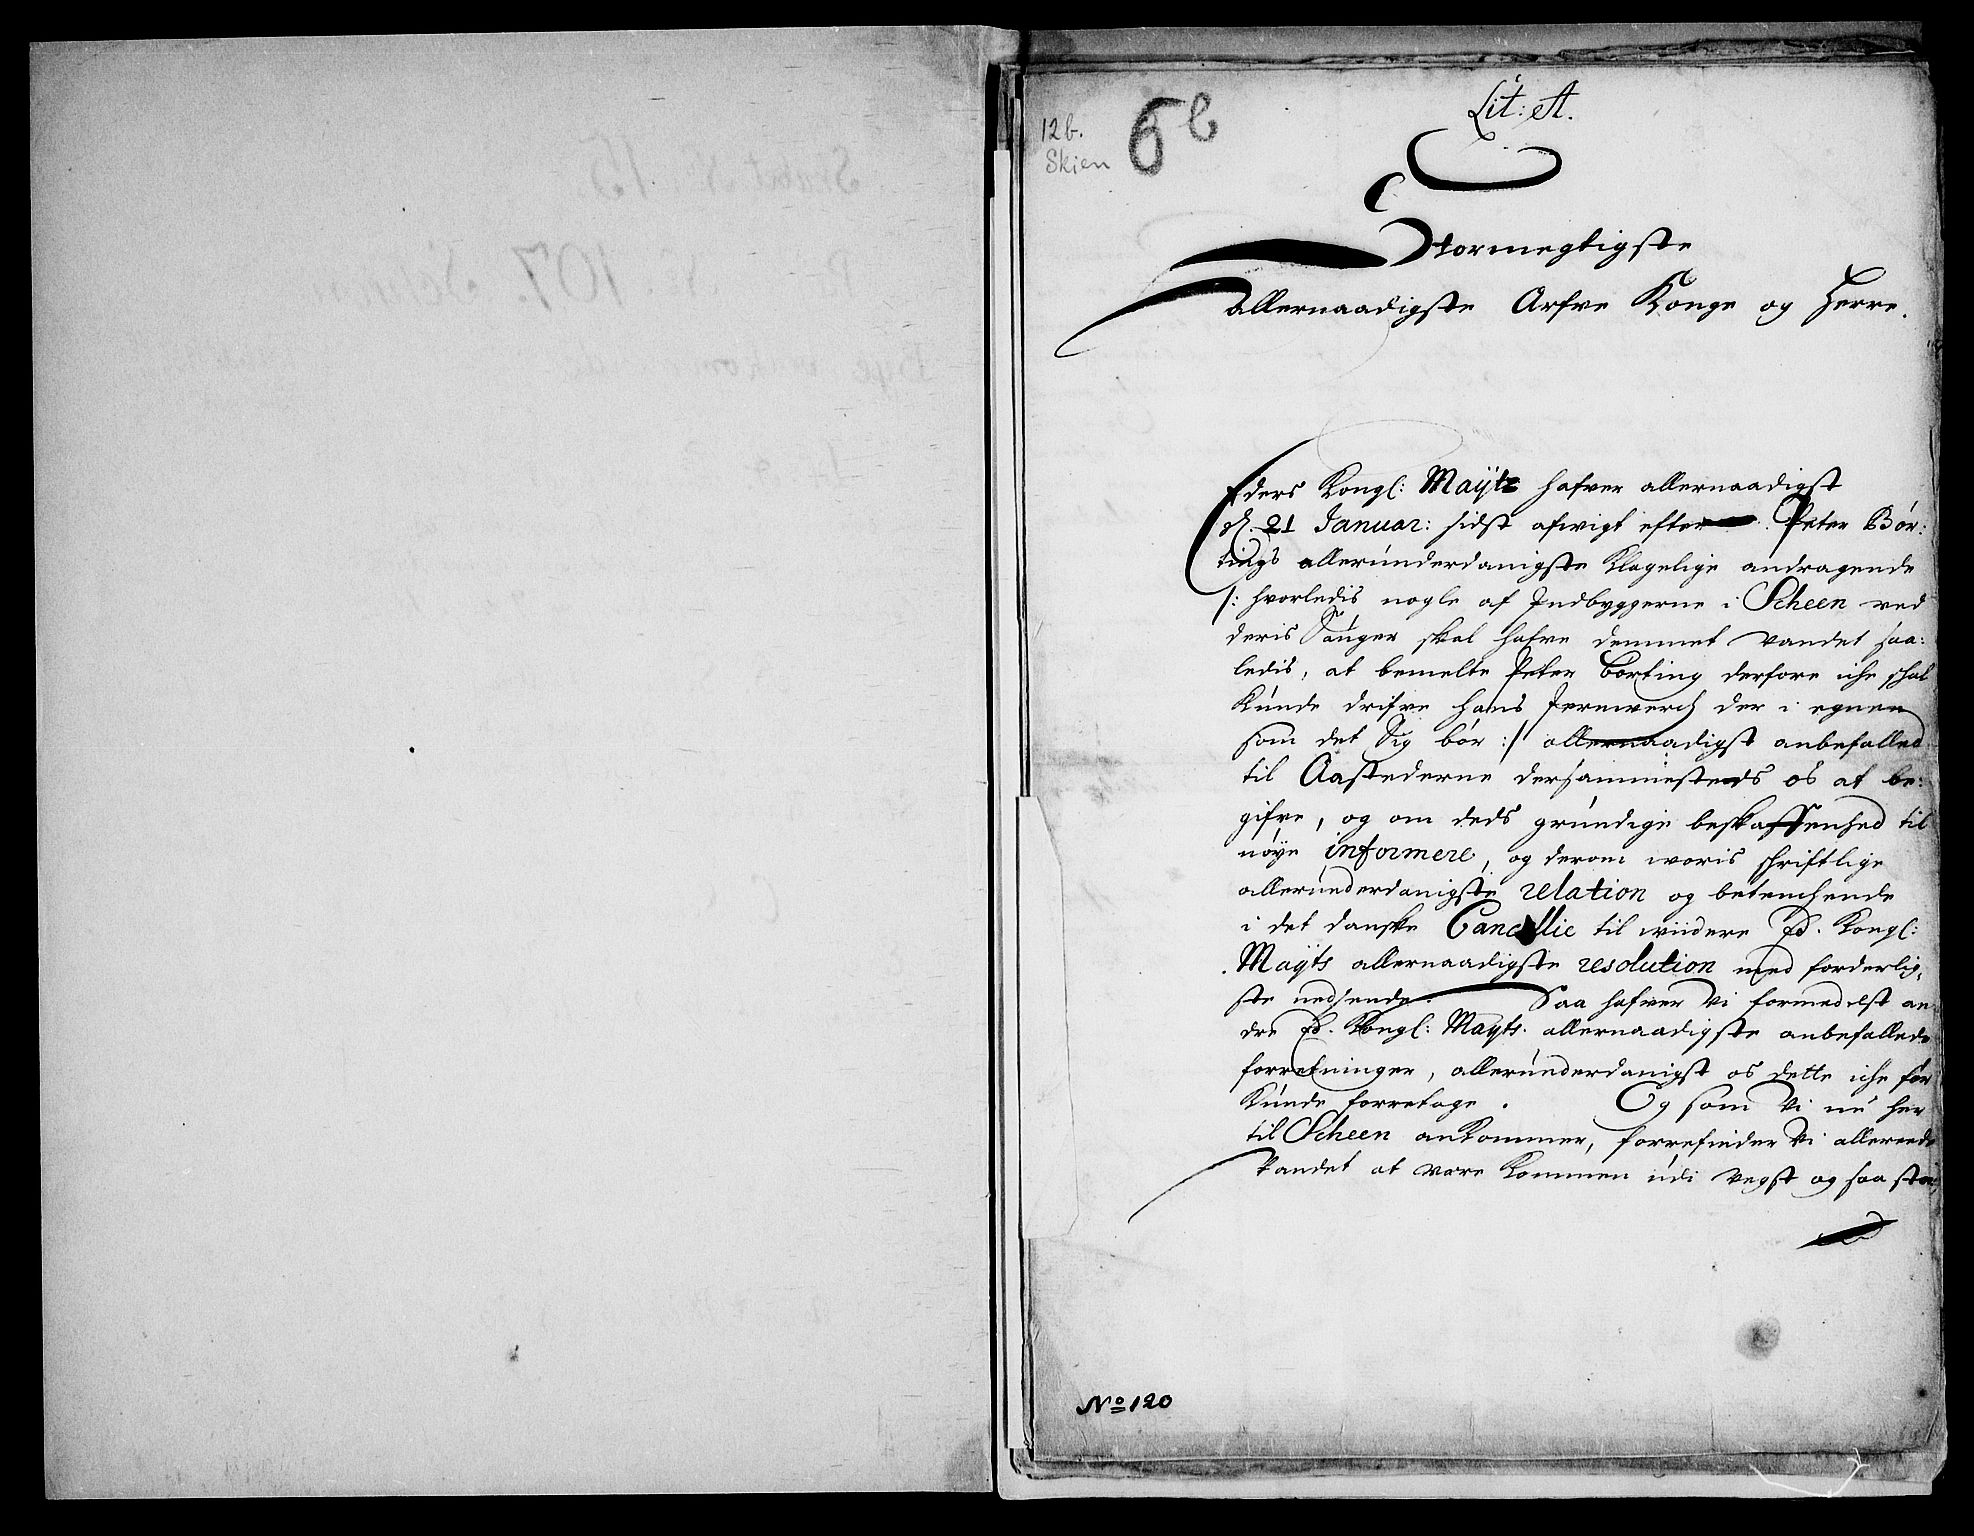 Lit: A.
12b.
Skien
6b
Stormegtigste
Allernaadigste Arfve Konge og Herre.
Eders Kongl: Maÿtz hafver allernaadigst
d. 21 Januar: sidst afvigt efter Peter Bör:
tings allerúnderdanigste klagelige andragende
/: hvorledis nogle af Indbyggerne i Scheen ved
deris Sauger skal hafve demmet vandet saa:
ledis, at bemelte Peter Börting derfore iche skal
kúnde drifve hans Jernverch der i egnen
som det sig bör :/ allernaadigst anbefalled
til Aastederne dersammesteds os at be:
gifve, og om deds grúndige beskaffenhed til
nöye informere, og derom woris schriftlige
allerúnderdanigste relation og betenchende
i det danske Cancellie til viidere Ed. Kongl:
Maÿts allernaadigste resolution med forderlig,
ste nedsende. Saa hafver Vi formedelst an
dre Ed. Kongl: Mayts. allernaadigste anbefallede
forretninger, allerúnderdanigst os dette iche för
kúnde forretage. Og som Vi nú her
til Scheen ankommer, forrefinder Vi allereede
vandet at være kommen údi vegst og saa
No 120